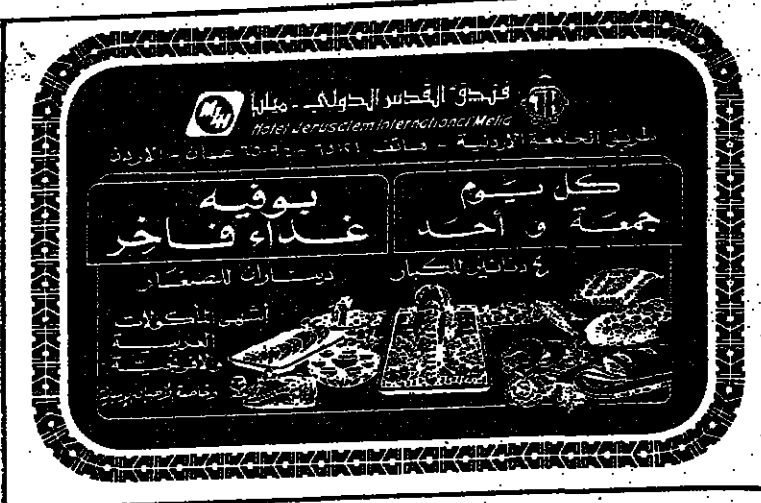 فندق القدس الدولي - ميليا
Hotel Jerusalem International Melia
MIH
طريق الجامعة الاردنية - هاتف عمان - الاردن
كل يوم
جمعة و أحد
بوفيه
غداء فاخر
٤ دنانير للكبار
ديناران للصغار
أشهى المأكولات
العربية
والافرنجية